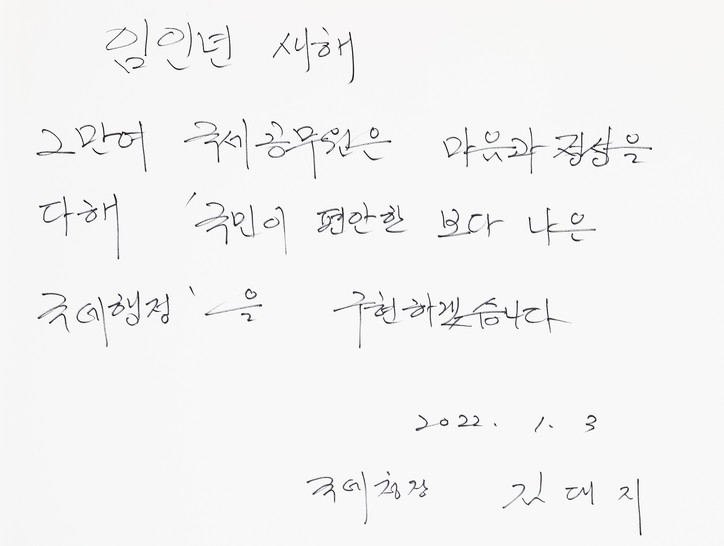 임인년 새해
2만여 국세공무원은 마음과 정성을
다해 '국민이 편안한 보다 나은
국세행정'을 구현하겠습니다
2022. 1. 3
국세청장 김대지